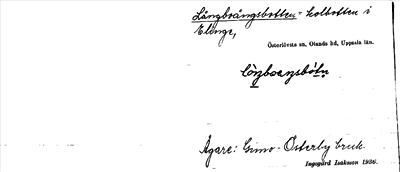 Långboängsbotten - kolbotten i
Elinge,
Österlövsta sn, Olands hd, Uppsala län.
Ägare: Gimo-Österby bruk.
Ingegärd Isaksson 1936.